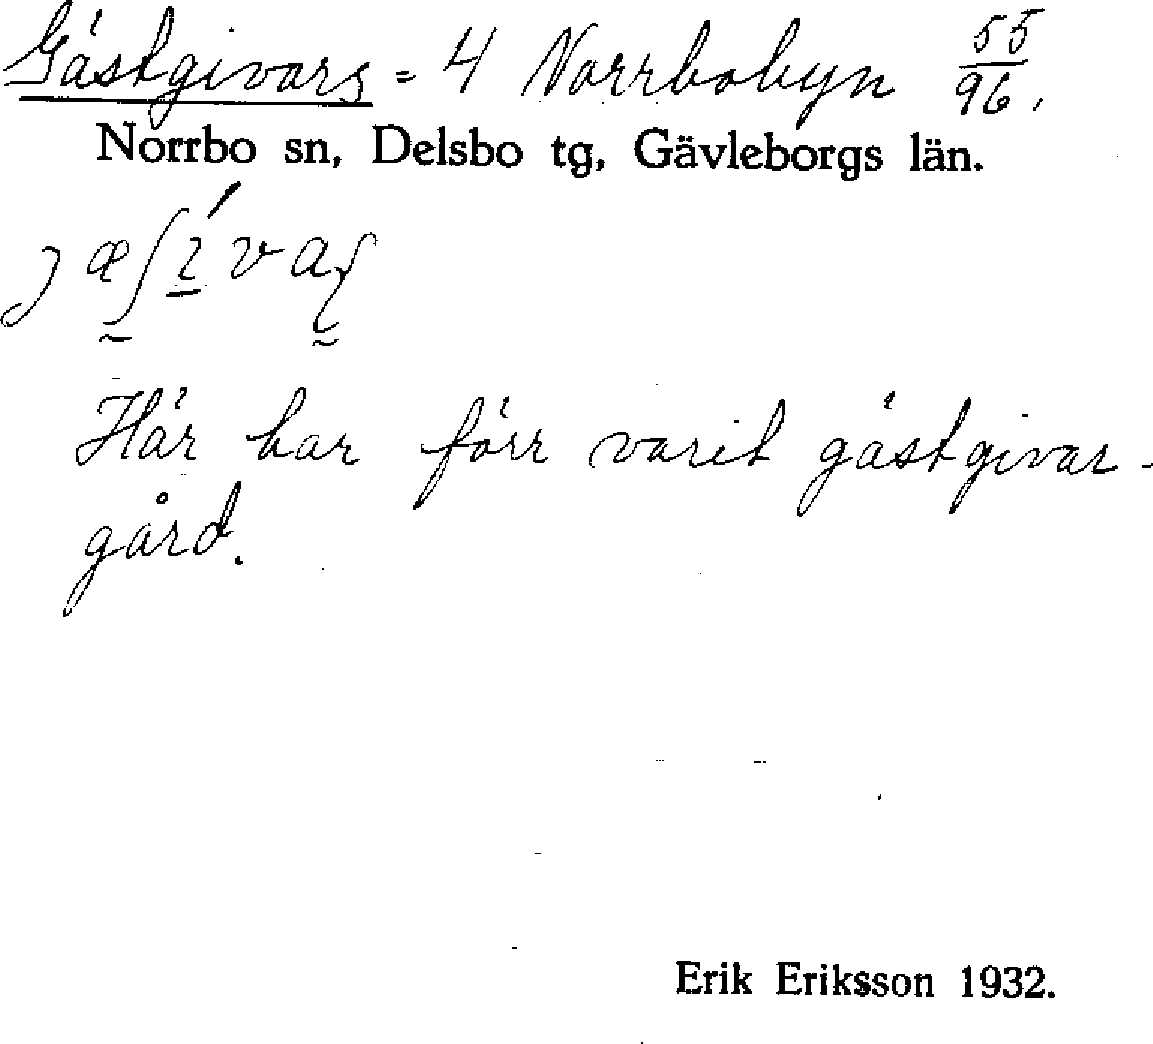 Gästgivars = 4 Norrbobyn 55/96.
Norrbo sn, Delsbo tg, Gävleborgs län.
Här har förr varit gästgivar-
gård.
Erik Eriksson 1932.